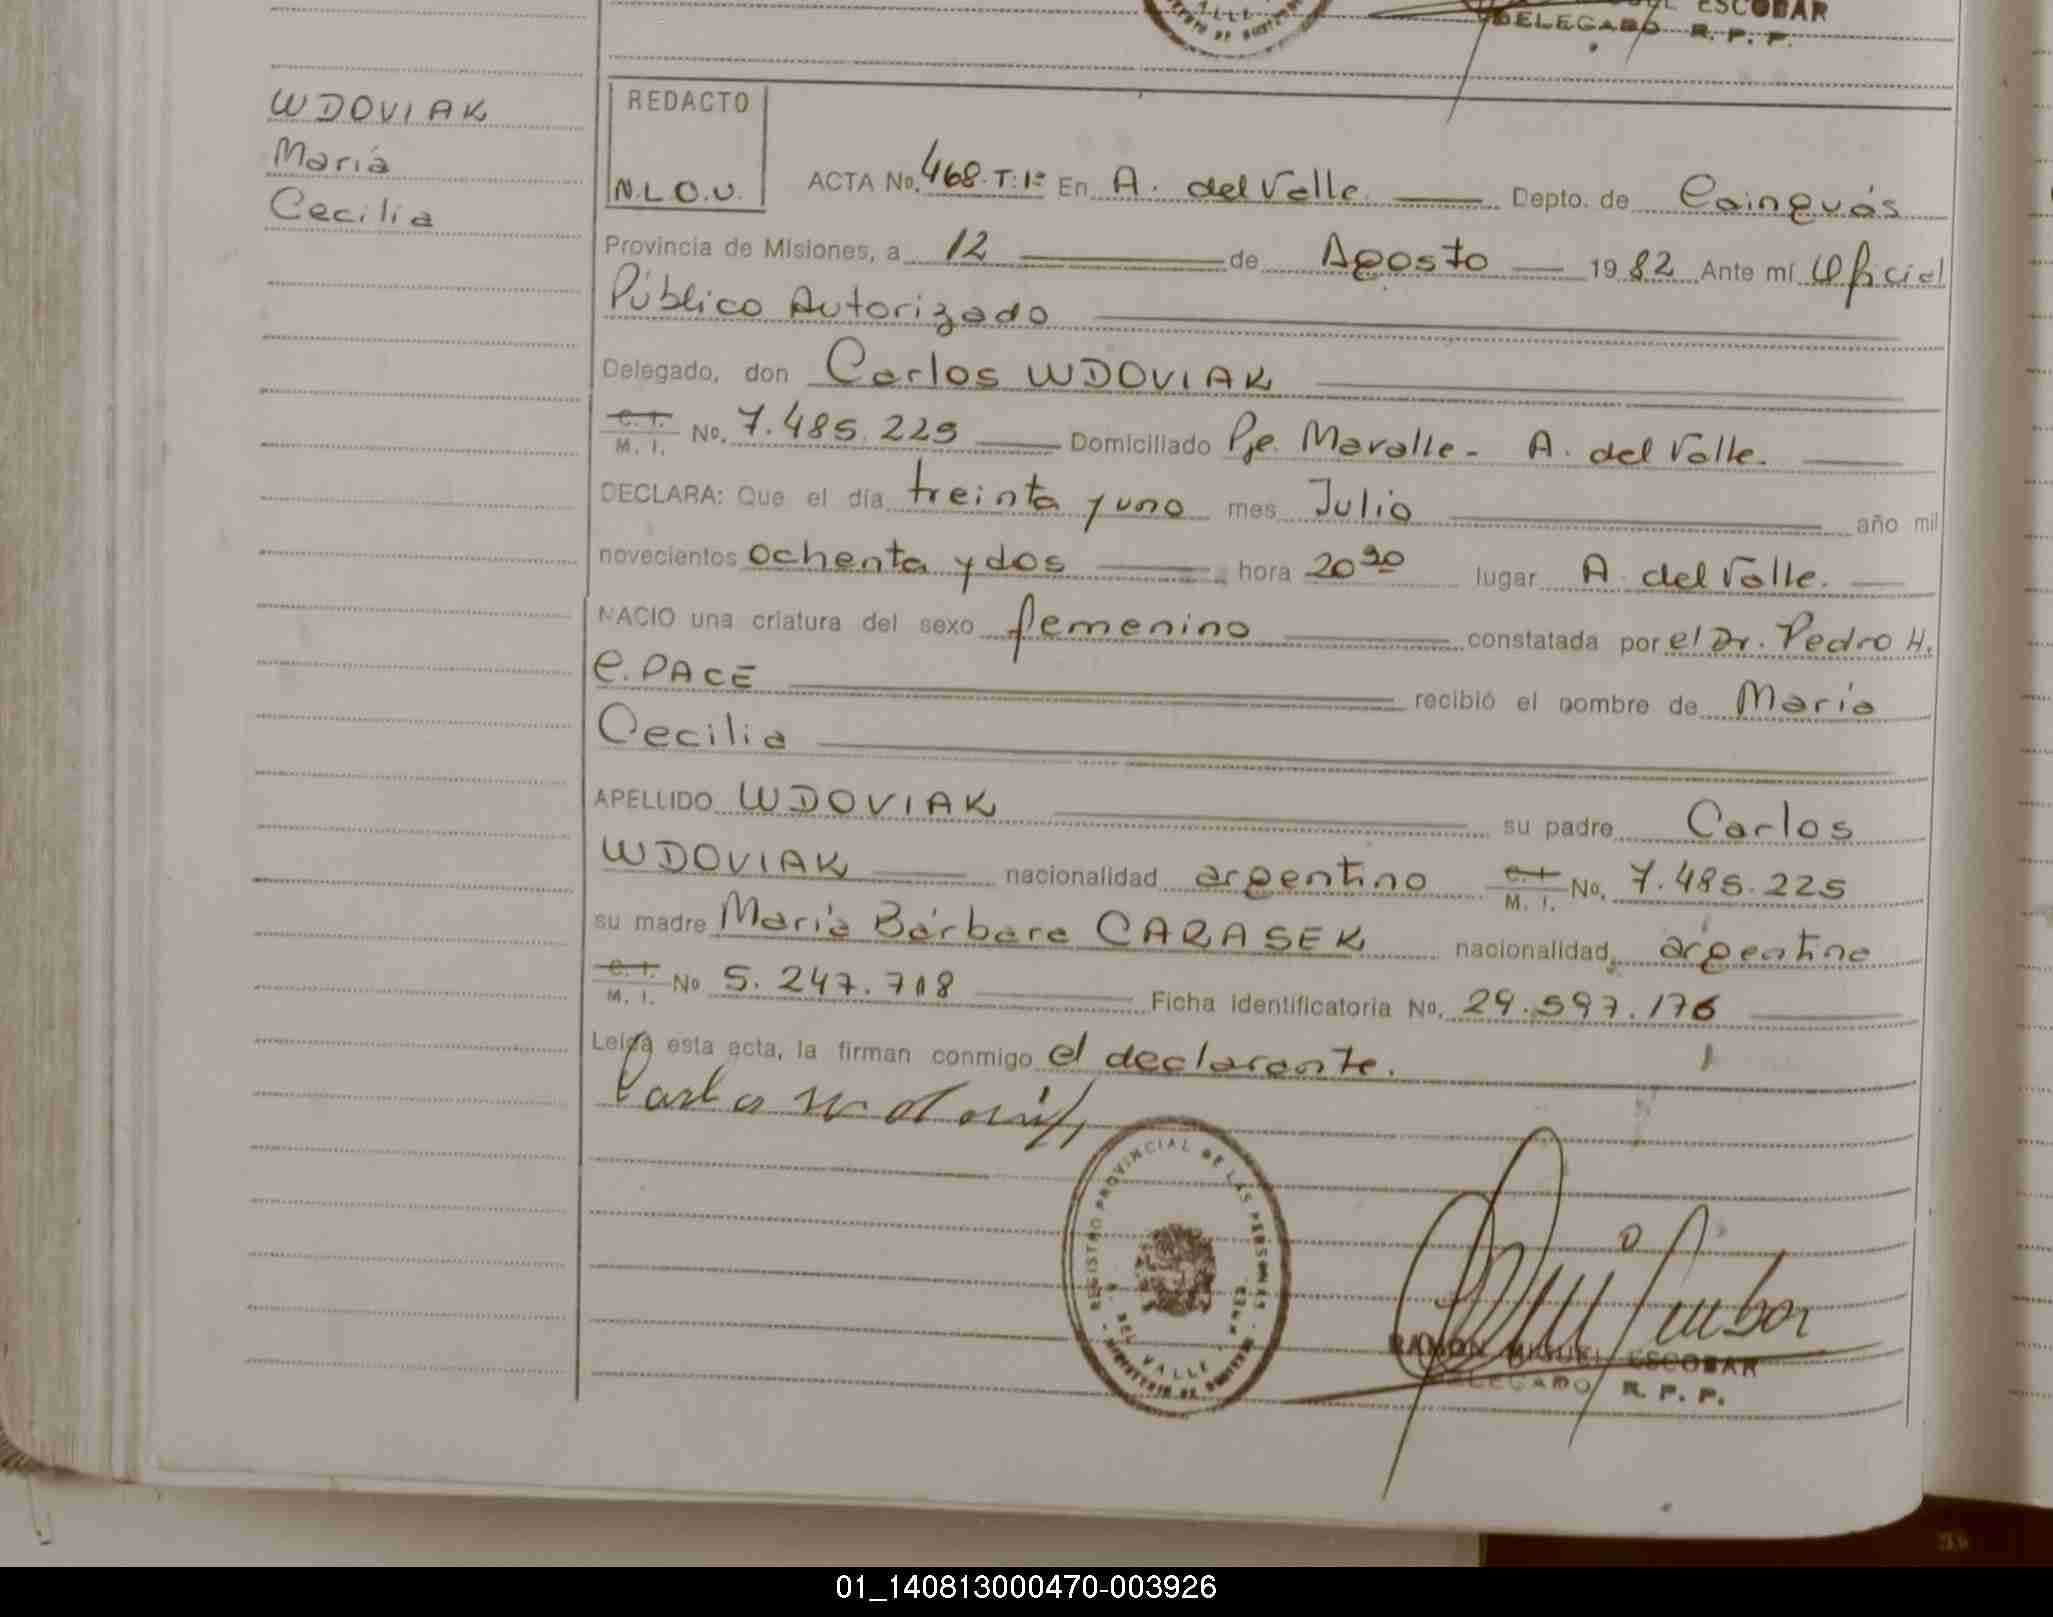 ESCOBAR
DELEGADO R. P. P.
WDOVIAK
María
Cecilia
REDACTO
N.L.O.V.
ACTA No. 468.T:1º En A. del Valle Depto. de Cainguás
Provincia de Misiones, a 12 de Agosto 1982 Ante mí Oficial
Público Autorizado
Delegado, don Carlos WDOVIAK
C. I. M. I. No. 7.485.225 Domiciliado Pje. Maralle - A. del Valle.
DECLARA: Que el día treinta y uno mes Julio año mil
novecientos ochenta y dos hora 20 lugar A. del Valle.
NACIO una criatura del sexo femenino constatada por el Dr. Pedro H.
C. PACE recibió el nombre de María
Cecilia
APELLIDO WDOVIAK su padre Carlos
WDOVIAK nacionalidad argentino C. I. M. I. No. 7.485.225
su madre María Bárbara CARASEK nacionalidad argentina
C. I. M. I. No 5.247.718 Ficha identificatoria No. 29.597.176
Leída esta acta, la firman conmigo el declarante.
REGISTRO PROVINCIAL DE LAS PERSONAS
A. DEL VALLE
MINISTERIO DE GOBIERNO
RAMON MIGUEL ESCOBAR
DELEGADO R. P. P.
01_140813000470-003926